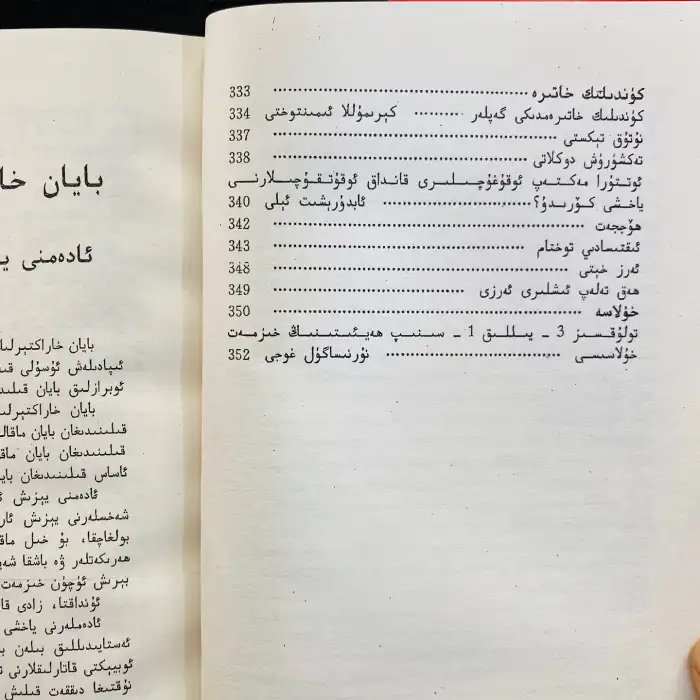 كۈندىلىك خاتىرە ............ 333
كۈندىلىك خاتىرەمدىكى گەپلەر ......... كېرىمۇللا ئىمىنتوختى 334
نۇتۇق تېكىستى ............ 337
تەكشۈرۈش دوكلاتى ............ 338
ئوتتۇرا مەكتەپ ئوقۇغۇچىلىرى قانداق ئوقۇتقۇچىلارنى
ياخشى كۆرىدۇ؟ ............ ئابدۇرېشىت ئېلى 340
ھۆججەت ............ 342
ئىقتىسادىي توختام ............ 343
ئەرز خېتى ............ 348
ھەق تەلەپ ئىشلىرى ئەرزى ............ 349
خۇلاسە ............ 350
تولۇقسىز 3 ـ يىللىق 1 ـ سىنىپ ھەيئىتىنىڭ خىزمەت
خۇلاسىسى ............ نۇرنىساگۈل غوجى 352
بايان خا
ئادەمنى ي
بايان خاراكتېرلى
ئىپادىلەش ئۇسۇلى قى
ئوبرازلىق بايان قىلىد
بايان خاراكتېرلى
قىلىنىدىغان بايان ماقال
قىلىنىدىغان بايان ماق
ئاساس قىلىنىدىغان بايا
ئادەمنى يېزىش ئ
شەخسلەرنى يېزىش ئار
بولغاچقا، بۇ خىل ماق
ھەرىكەتلەر ۋە باشقا شەي
بېرىش ئۈچۈن خىزمەت
ئۇنداقتا، زادى قا
ئادەملەرنى ياخشى
ئەستايىدىللىق بىلەن ب
ئوبيېكتى قاتارلىقلارنى ت
نۇقتىغا دىققەت قىلىش